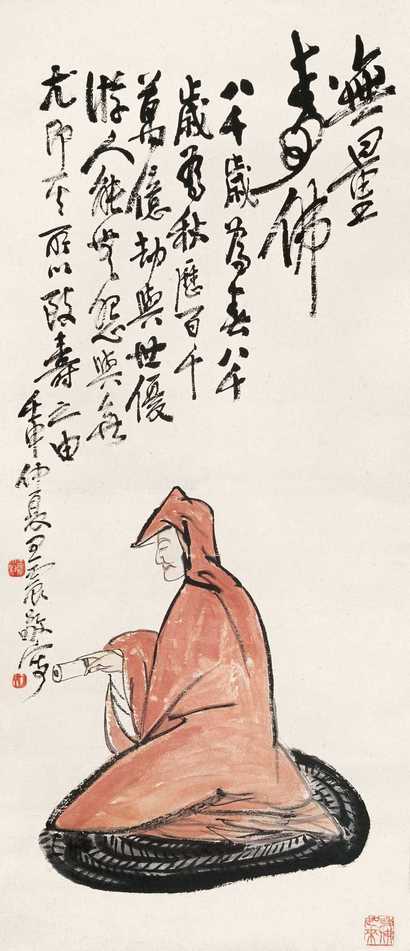 無量
壽佛
八千歲為春八千
歲為秋歷百千
萬億劫與世優
游人能無怨與無
尤即所以致壽之由
壬申仲夏王震敬寫